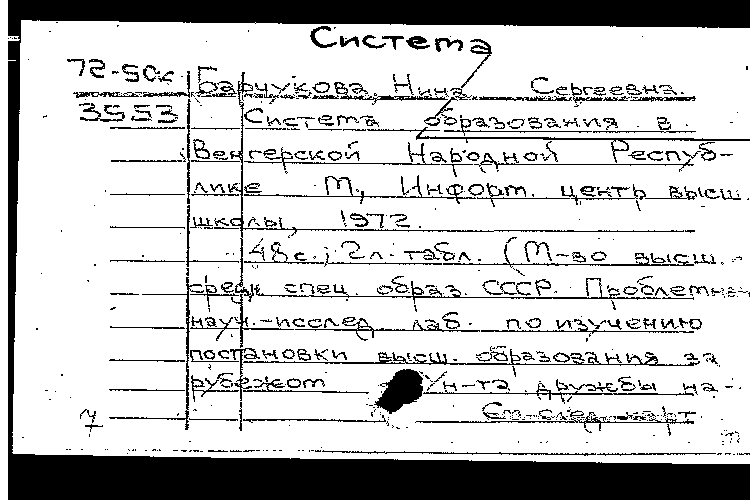 Система
72-50к Барчукова, Нина Сергеевна.
3553 Система образования в
Венгерской Народной Респуб-
лике М., Информ. центр высш.
школы, 1972.
48 с.; 2 л. табл. (М-во высш. -
средн спец. образ. СССР. Проблемная
науч.-исслед. лаб. по изучению
постановки высш. образования за
рубежом Ун-та дружбы на-
См. след. карт